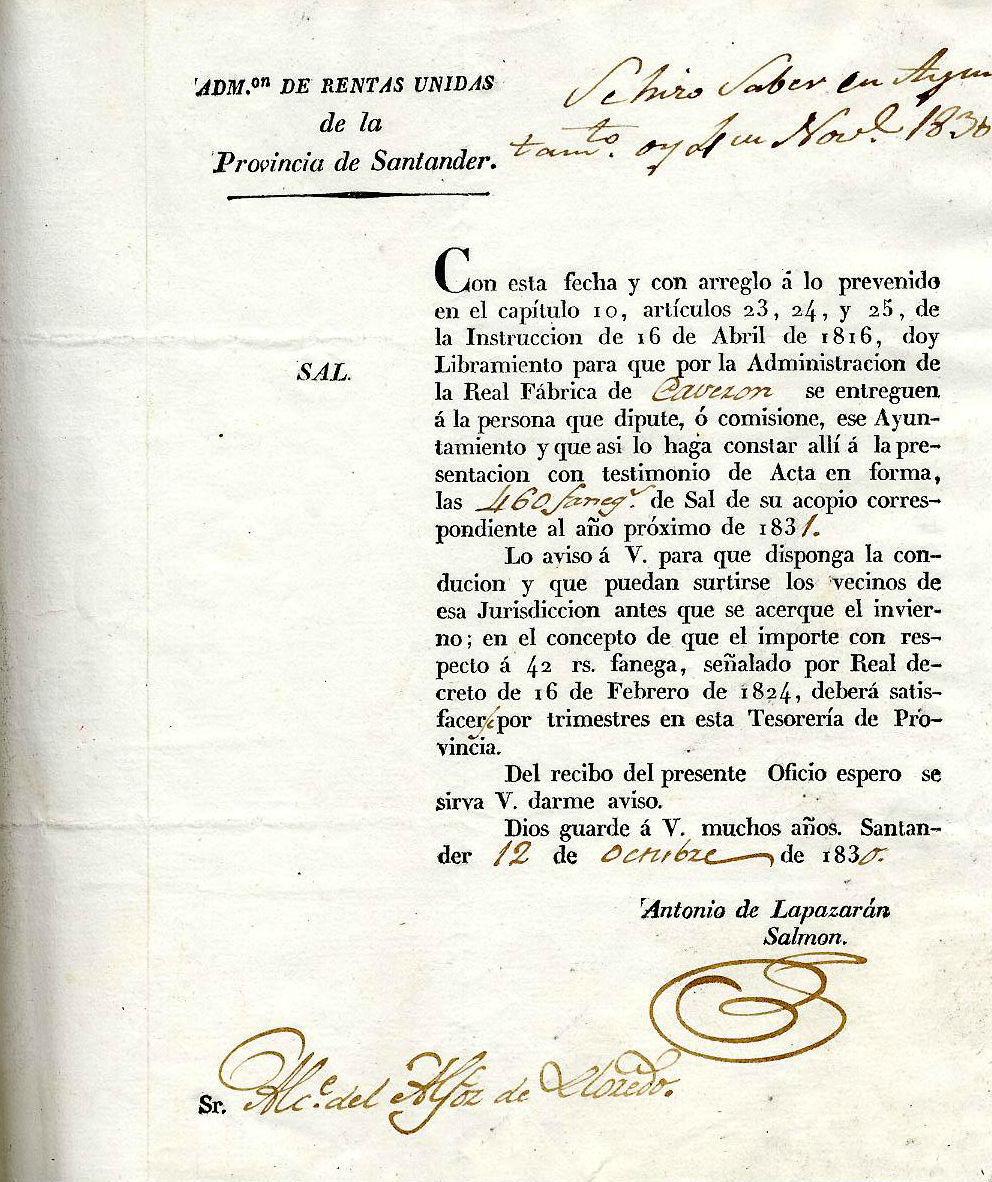 ADM.ᵒⁿ DE RENTAS UNIDAS
de la
Provincia de Santander.
Se hizo Saber en Ayun
tamᵗᵒ. oy 4 de Novᵉ. 1830
SAL.
Con esta fecha y con arreglo á lo prevenido
en el capítulo 10, artículos 23, 24, y 25, de
la Instruccion de 16 de Abril de 1816, doy
Libramiento para que por la Administracion de
la Real Fábrica de Cavezon se entreguen
á la persona que dipute, ó comisione, ese Ayun-
tamiento y que asi lo haga constar allí á la pre-
sentacion con testimonio de Acta en forma,
las 460 fanegˢ. de Sal de su acopio corres-
pondiente al año próximo de 1831.
Lo aviso á V. para que disponga la con-
ducion y que puedan surtirse los vecinos de
esa Jurisdiccion antes que se acerque el invier-
no; en el concepto de que el importe con res-
pecto á 42 rs. fanega, señalado por Real de-
creto de 16 de Febrero de 1824, deberá satis-
facer por trimestres en esta Tesorería de Pro-
vincia.
Del recibo del presente Oficio espero se
sirva V. darme aviso.
Dios guarde á V. muchos años. Santan-
der 12 de Octubre de 1830.
Antonio de Lapazarán
Salmon.
Sr. Alcᵉ. del Alfoz de Lloredo.